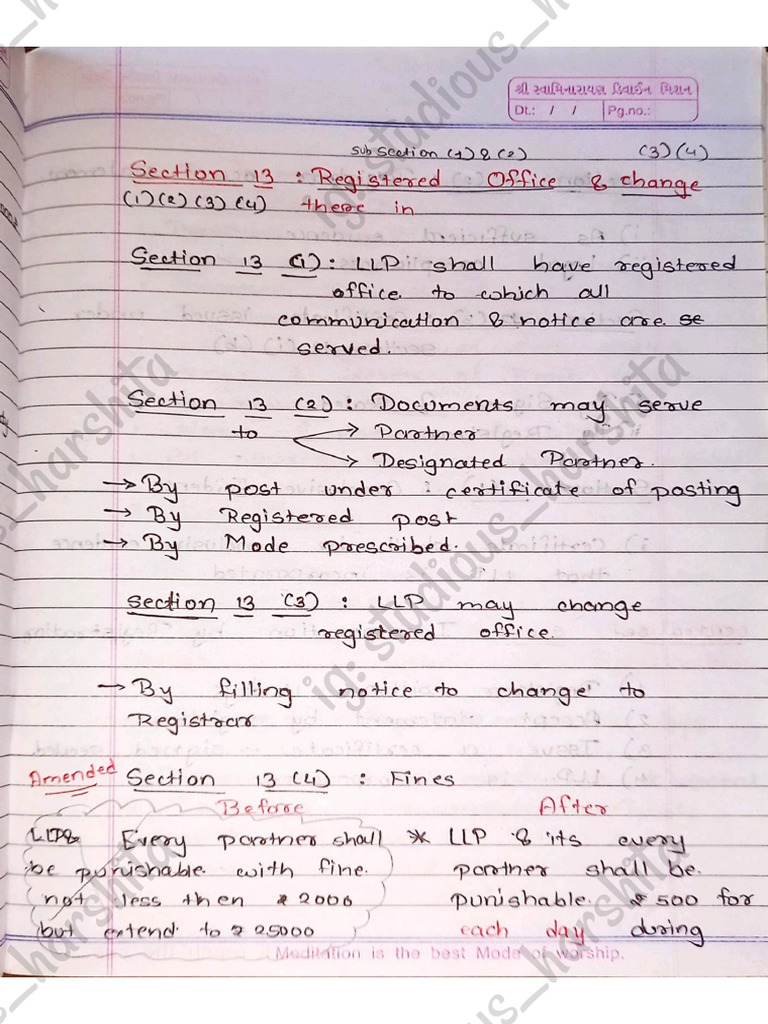 શ્રી સ્વામિનારાયણ ડિવાઈન મિશન
Dt.: / / Pg.no.:
Sub Section (1) & (2) (3) (4)
Section 13 : Registered Office & change
(1) (2) (3) (4) there in
Section 13 (1) : LLP shall have registered
office to which all
communication & notice are se
served.
Section 13 (2) : Documents may serve
to → Partner
→ Designated Partner.
→ By post under certificate of posting
→ By Registered post
→ By Mode prescribed.
Section 13 (3) : LLP may change
registered office.
→ By filling notice to change to
Registrar
Amended Section 13 (4) : Fines
Before After
LLP & Every partner shall * LLP & its every
be punishable with fine. partner shall be.
not less then ₹ 2000 punishable ₹ 500 for
but extend to ₹ 25000 each day during
Meditation is the best Mode of worship.
ig: studious_harshita